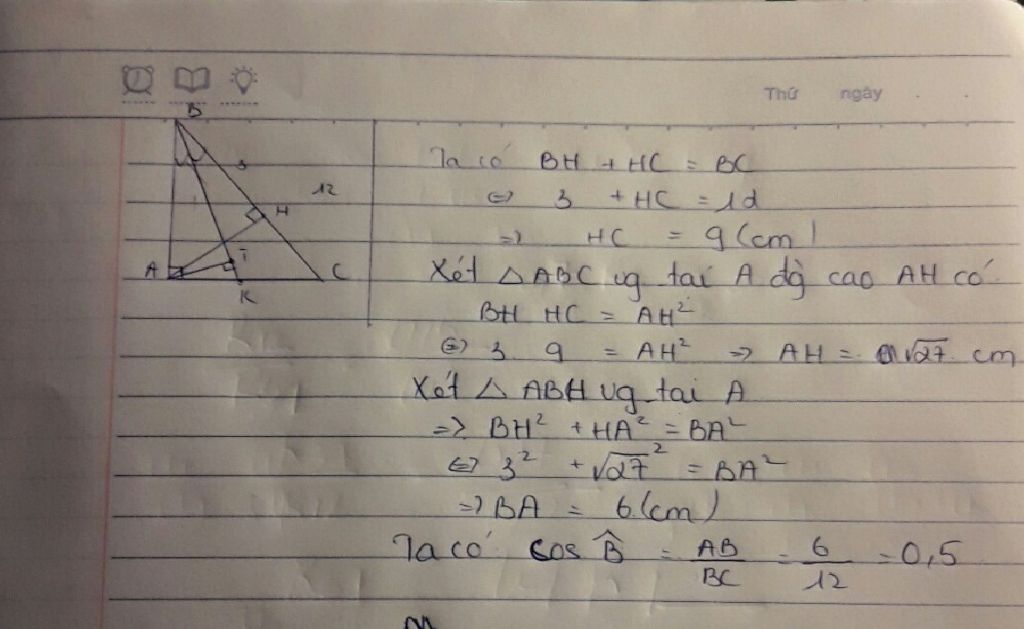 Thứ ngày
B
3
12
H
A
I
C
K
Ta có BH + HC = BC
⇔ 3 + HC = 12
⇒ HC = 9 (cm)
Xét △ABC vg tại A đg cao AH có
BH HC = AH²
⇔ 3 9 = AH² ⇒ AH = √27 cm
Xét △ ABH vg tại A
⇒ BH² + HA² = BA²
⇔ 3² + √27² = BA²
⇒ BA = 6 (cm)
Ta có cos B̂ = AB/BC = 6/12 = 0,5